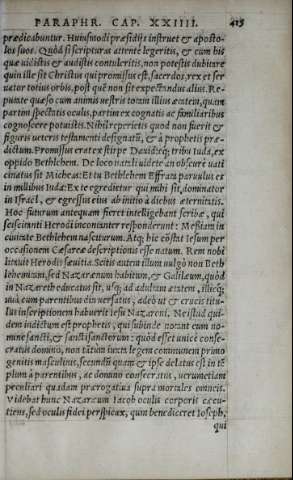 PARAPHR. CAP. XXIIII. 415
prædicabuntur. Huiusmodi præsidijs instruet & aposto-
los suos. Quòd si scripturas attentè legeritis, & cum his
quæ uidistis & audistis contuleritis, non potestis dubitare
quin ille sit Christus qui promissus est, sacerdos, rex et ser
uator totius orbis, post quē non sit expectandus alius. Re-
putate quæso cum animis uestris totam illius ætatem, quam
partim spectastis oculis, partim ex cognatis ac familiaribus
cognoscere potuistis. Nihil reperietis quod non fuerit &
figuris ueteris testamenti designatū, & à prophetis præ-
dictum. Promissus erat ex stirpe Dauidica, tribu Iuda, ex
oppido Bethlehem. De loco natali uidete an obscurè uati
cinatus sit Micheas: Et tu Bethlehem Effrata paruulus es
in milibus Iuda: Ex te egredietur qui mihi sit, dominator
in Israel, & egressus eius ab initio à diebus æternitatis.
Hoc futurum antequam fieret intelligebant scribæ, qui
sciscitanti Herodi incunctanter responderunt: Messiam in
ciuitate Bethlehem nasciturum. Atq; hic cōstat Iesum per
occasionem Cæsareæ descriptionis esse natum. Rem nobi
litauit Herodis sæuitia. Scitis autem illum uulgò non Beth
lehemitam, sed Nazarenum habitum, & Galilæum, quòd
in Nazareth educatus sit, usq; ad adultam ætatem, illicq;
unà cum parentibus diu uersatus, adeò ut & crucis titu-
lus inscriptionem habuerit Iesu Nazareni. Ne istud qui-
dem indictum est prophetis, qui subinde uocant eum no-
mine sancti, & sancti sanctorum: quòd esset unicè conse-
cratus domino, non tātum iuxta legem communem primo
genitis masculinis, secundū quam & ipse delatus est in tē
plum à parentibus, ac domino consecratus, uerumetiam
peculiari quadam prærogatiua supra mortales omneis.
Videbat hunc Nazaræum Iacob oculis corporis cæcu-
tiens, sed oculis fidei perspicax, quum benediceret Ioseph,
qui